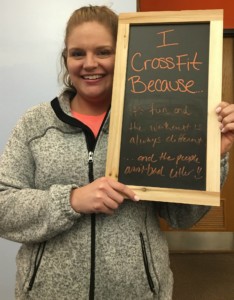 I
CrossFit
Because.
fun and
the workout is
always different
...and the people
aren't bad either !!